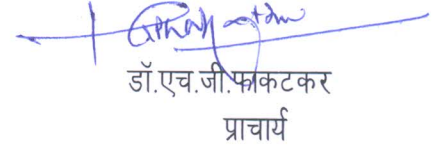 डॉ.एच.जी.फाकटकर
प्राचार्य